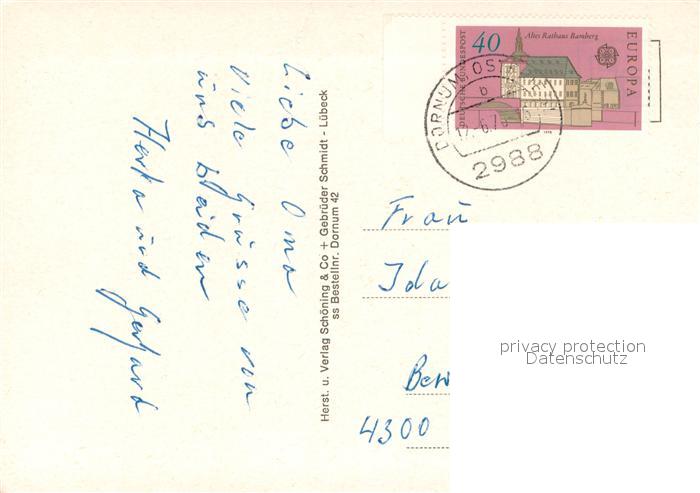 Liebe Oma
Viele Grüsse von
uns beiden
Herta und Gerhard
Herst. u. Verlag Schöning & Co + Gebrüder Schmidt - Lübeck
ss Bestellnr. Dornum 42
DEUTSCHE BUNDESPOST
40
Altes Rathaus Bamberg
EUROPA
1978
DORNUM, OST
b
2988
Frau
Ida
4300
privacy protection
Datenschutz